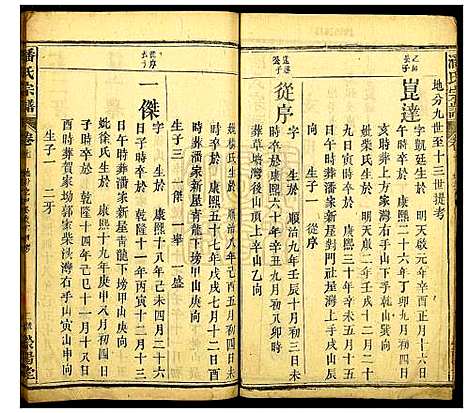 潘氏宗譜
地分九世至十三世提考
崑達
字凱廷生於 明天啟元年辛酉正月十六日
時卒於 康熙二十六年丁卯九月初九日
時葬上方家灣右手乾山巽向
妣柴氏生於 明天啟四年甲子十月二十
日時卒於 康熙三十年辛未五月十五
日時葬潘家新屋對門社屋灣辛山乙向
生子一 從序
從序
字 生於 順治九年壬辰十月初三日
時卒於 康熙六十年辛丑九月初三日
葬草塘灣後山頂上辛山乙向
妣 氏生於 順治八年 酉五月初四日
時卒於 康熙五十七年戊戌七月十二日
時葬潘家新屋青龍下塝甲山庚向
生子三 一傑 一舉 一盛
一傑
字 生於 康熙十八年己未四月二十六
日午時卒於 乾隆十一年丙寅十二月十三
日午時葬潘家新屋青龍下塝甲山庚向
妣徐氏生於 康熙二十九年庚午八月初四
日子時卒於 乾隆十四年己巳十一月十八日
酉時葬賀家坳郭家柴 灣右手山寅山申向
生子一 二牙
潘氏宗譜
榮陽堂